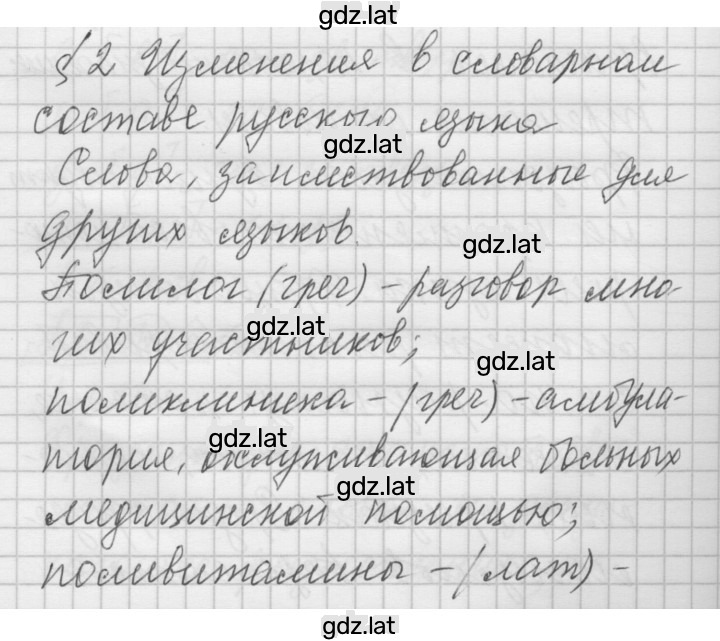 gdz.lat
§ 2 Изменения в словарном
составе русского языка
gdz.lat
Слова, заимствованные для
других языков.
gdz.lat
Полилог (греч) - разговор мно-
gdz.lat
гих участников;
gdz.lat
поликлиника - (греч) - амбула-
gdz.lat
тория, обслуживающая больных
gdz.lat
медицинской помощью;
поливитамины - (лат) -
gdz.lat